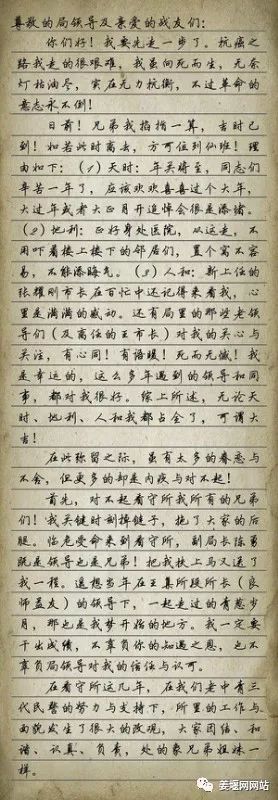 尊敬的局领导及亲爱的战友们：
你们好！我要先走一步了。抗癌之
路我走的很艰难，我虽向死而生，无奈
灯枯油尽，实在无力抗衡，不过革命的
意志永不倒！
日前！兄弟我掐指一算，吉时已
到！如若此时离去，方可位到仙班！理
由如下：（1）天时：年关将至，同志们
辛苦一年了，应该欢欢喜喜过个大年，
大过年或者大正月开追悼会很是添堵。
（2）地利：正好身处医院，从这走，不
用吓着楼上楼下的邻居们，置个窝不容
易，不能添晦气。（3）人和：新上任的
张耀刚市长在百忙中还记得来看我，心
里是满满的感动。还有局里的那些老领
导们（及高任的王市长）对我的关心与
关注，有心同！有语暖！死而无憾！我
是幸运的，这么多年遇到的领导和同
事，都对我很好。综上所述，无论天
时、地利、人和我都占全了，可谓大
吉！
在此弥留之际，虽有太多的眷恋与
不舍，但更多的却是内疚与对不起！
首先，对不起看守所我所有的兄弟
们！我关键时刻掉链子，拖了大家的后
腿。临危受命来到看守所，副局长陈勇
既是领导也是兄弟！把我扶上马又送了
我一程。遥想当年在王集所段所长（良
师益友）的领导下，一起走过的青葱岁
月，那也是我梦开始的地方。我一定要
干出成绩，不辜负你的知遇之恩，也不
辜负局领导对我的信任与认可。
在看守所这几年，在我们老中青三
代民警的努力与支持下，所里的工作与
面貌发生了很大的改观，大家团结、和
谐、认真、负责，处的象兄弟姐妹一
样。
姜堰网网站